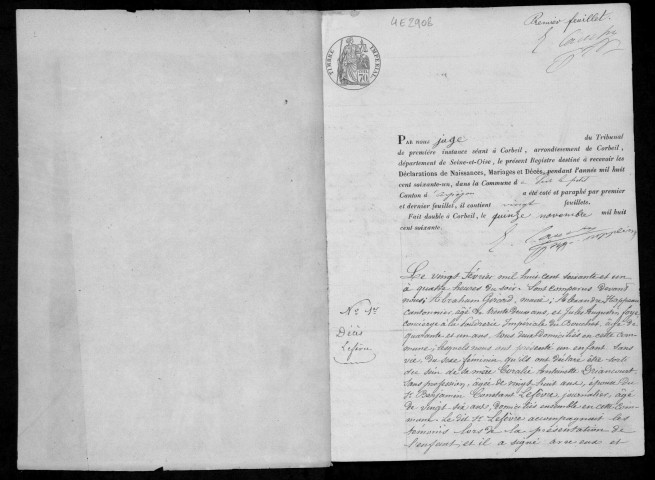 4E2908
Premier feuillet.
TIMBRE IMPERIAL
PAR nous juge du Tribunal
de première instance séant à Corbeil, arrondissement de Corbeil,
département de Seine-et-Oise, le présent Registre destiné à recevoir les
Déclarations de Naissances, Mariages et Décès, pendant l'année mil huit
cent soixante-un, dans la Commune d
Canton d'Arpajon a été coté et paraphé par premier
et dernier feuillet, il contient vingt feuillets.
Fait double à Corbeil, le quinze novembre mil huit
cent soixante.
Le vingt Février mil huit cent soixante et un
à quatre heures du soir. Sont comparus devant
nous; Abraham Gérard, maire; Alexandre
cantonnier âgé de trente deux ans, et Jules Augustin
concierge à la Poudrerie Impériale du Bouchet, âgé de
quarante et un ans, tous deux domiciliés en cette com
mune; lesquels nous ont présenté un enfant sans
vie du sexe féminin qu'ils ont déclaré être sorti
du sein de la mère Coralie Antoinette Driancourt
sans profession, âgée de vingt huit ans, épouse du
Sr. Benjamin Constant Lefèvre journalier, âgé
de vingt six ans, domiciliés ensemble en cette Com
mune. Le dit Sr. Lefèvre accompagnait les
témoins lors de la présentation de
l'enfant, et il a signé avec eux et
No. 1er
Décès
Lefèvre